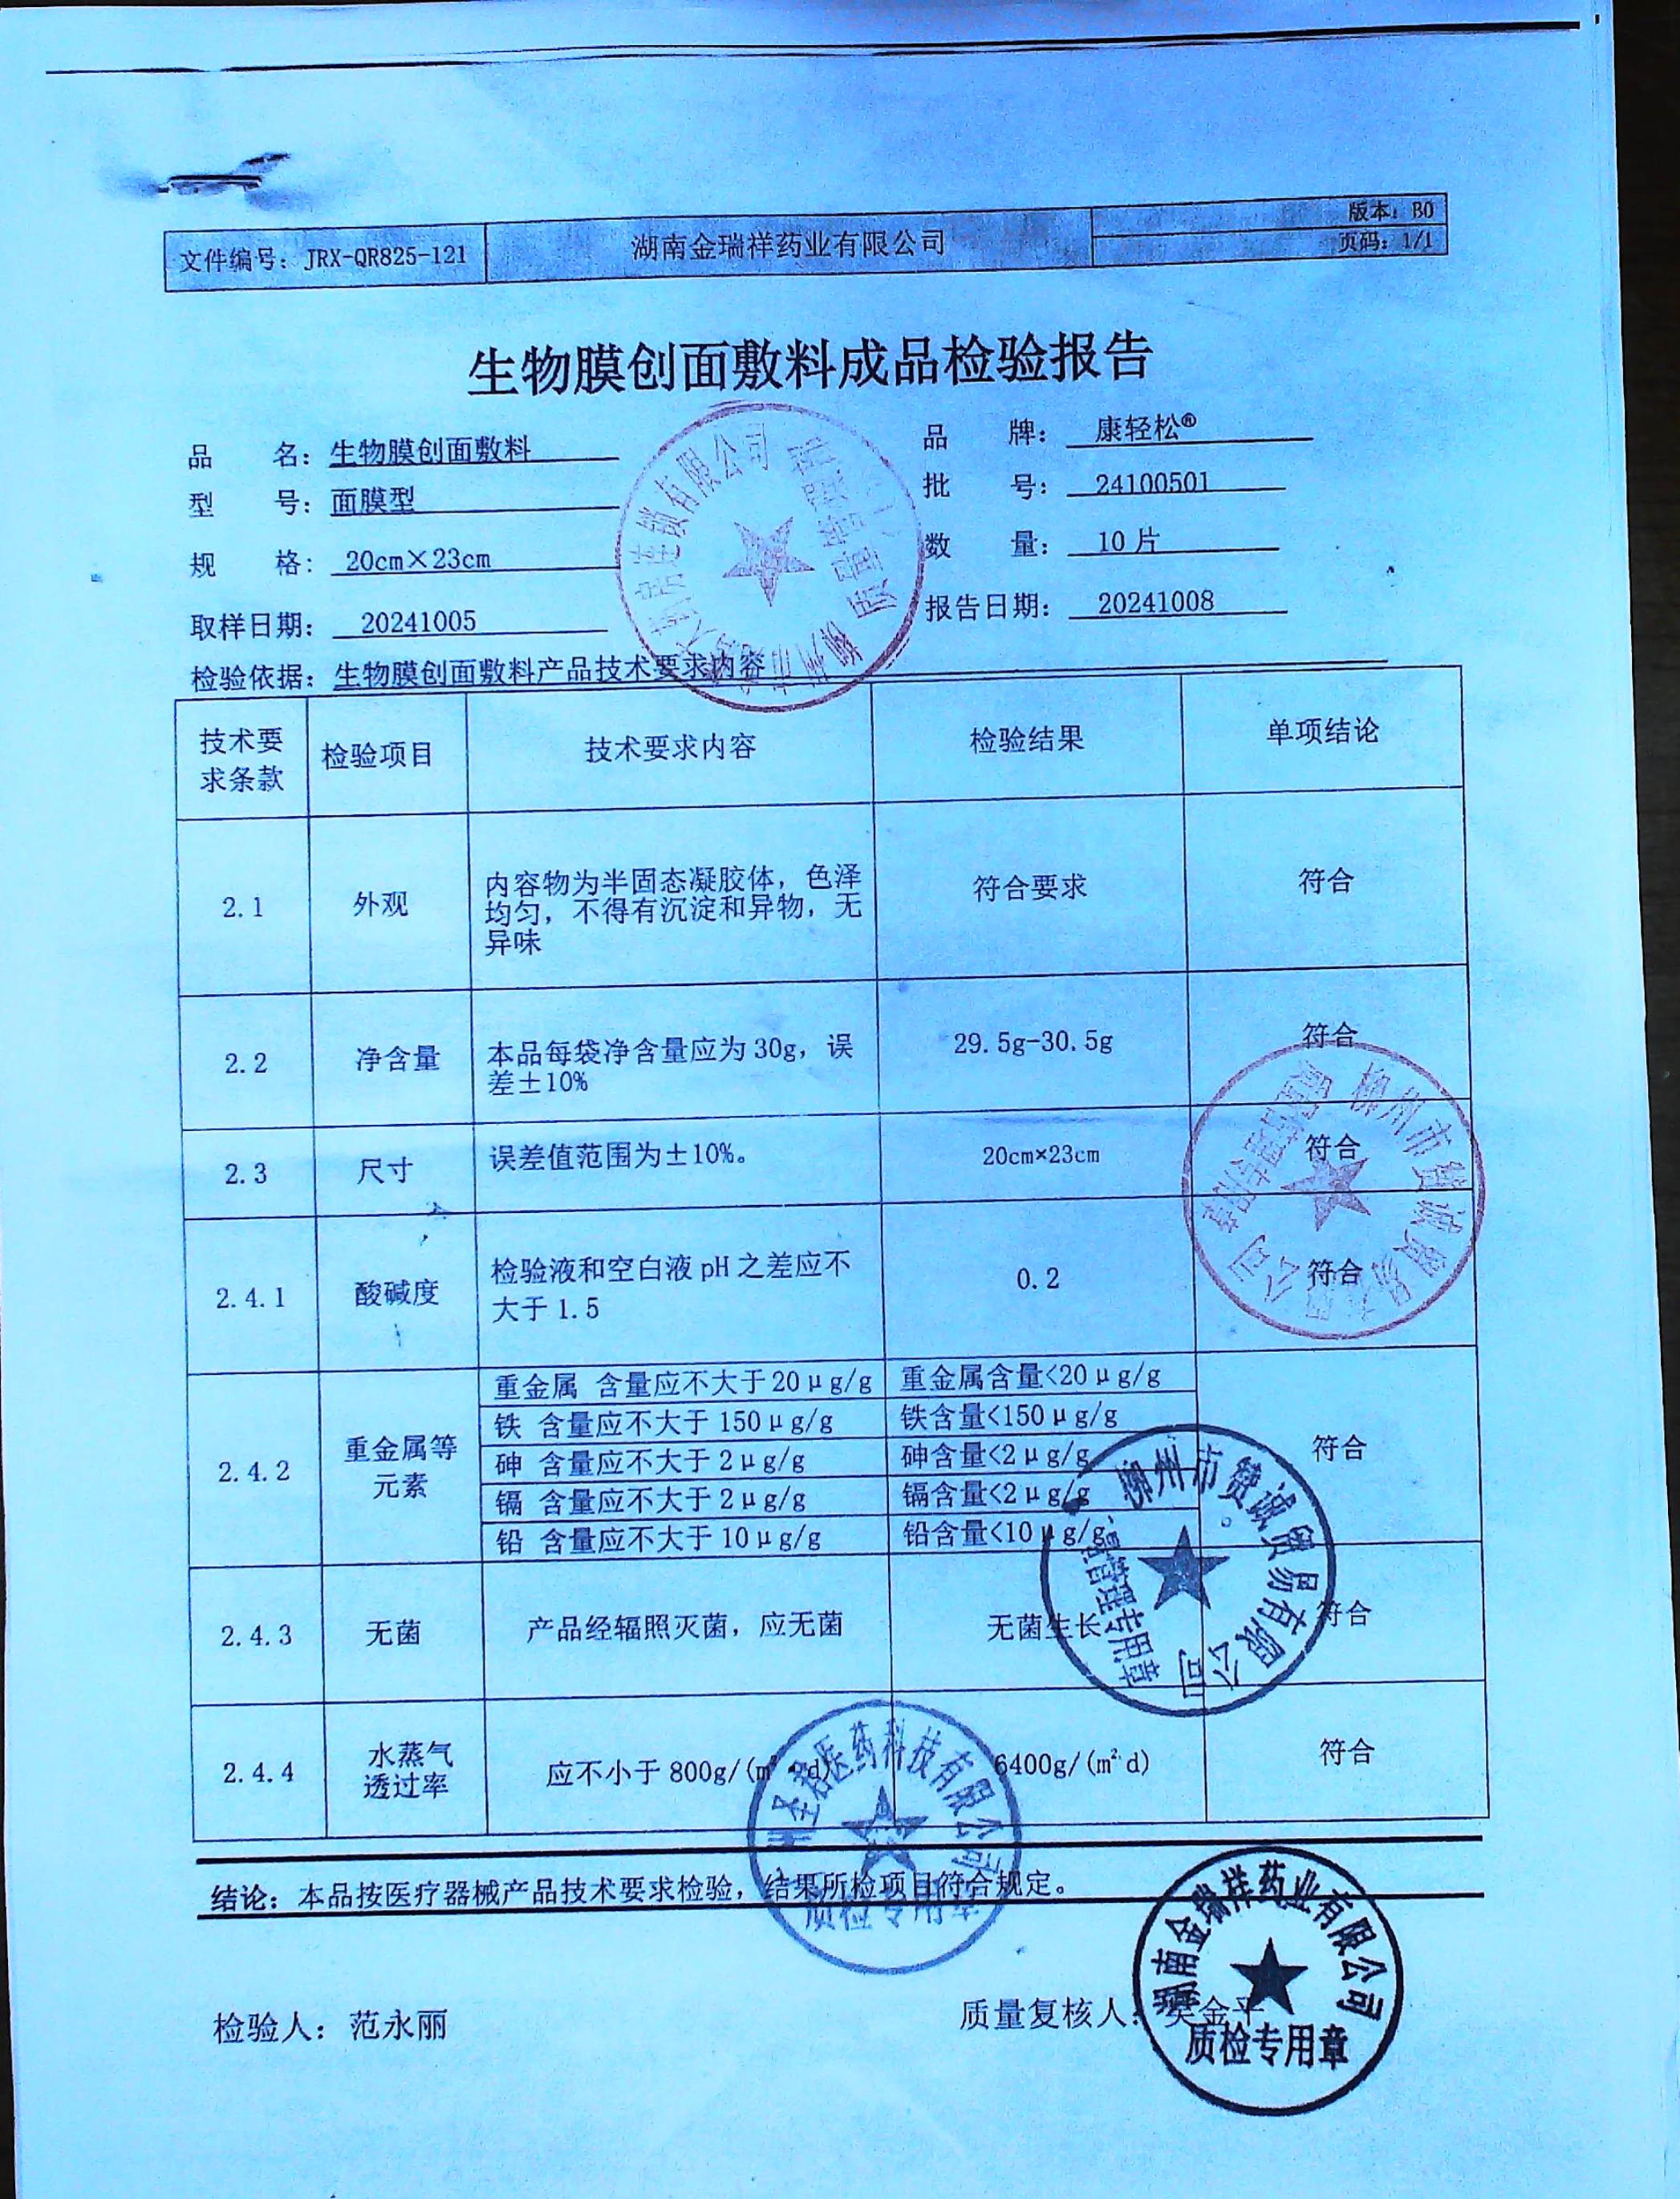 文件编号: JRX-QR825-121
湖南金瑞祥药业有限公司
版本: B0
页码: 1/1
生物膜创面敷料成品检验报告
品 名: 生物膜创面敷料
品 牌: 康轻松®
型 号: 面膜型
批 号: 24100501
规 格: 20cm×23cm
数 量: 10片
取样日期: 20241005
报告日期: 20241008
检验依据: 生物膜创面敷料产品技术要求内容
技术要求条款 检验项目 技术要求内容 检验结果 单项结论
2.1 外观
内容物为半固态凝胶体, 色泽
均匀, 不得有沉淀和异物, 无
异味
符合要求 符合
2.2 净含量
本品每袋净含量应为30g, 误
差±10%
29.5g-30.5g 符合
2.3 尺寸 误差值范围为±10%。 20cm×23cm 符合
2.4.1 酸碱度
检验液和空白液pH之差应不
大于1.5
0.2 符合
2.4.2 重金属等
元素
重金属 含量应不大于20μg/g 重金属含量<20μg/g
铁 含量应不大于150μg/g 铁含量<150μg/g
砷 含量应不大于2μg/g 砷含量<2μg/g
镉 含量应不大于2μg/g 镉含量<2μg/g
铅 含量应不大于10μg/g 铅含量<10μg/g
符合
2.4.3 无菌 产品经辐照灭菌, 应无菌 无菌生长 符合
2.4.4 水蒸气
透过率
应不小于800g/(m²·d) 6400g/(m²·d) 符合
结论: 本品按医疗器械产品技术要求检验, 结果所检项目符合规定。
检验人: 范永丽
质量复核人: 金平
柳州市赞诚贸易有限公司
质量管理专用章
柳州市赞诚贸易有限公司
质量管理专用章
圣君医药科技有限公司
质检专用章
湖南金瑞祥药业有限公司
质检专用章